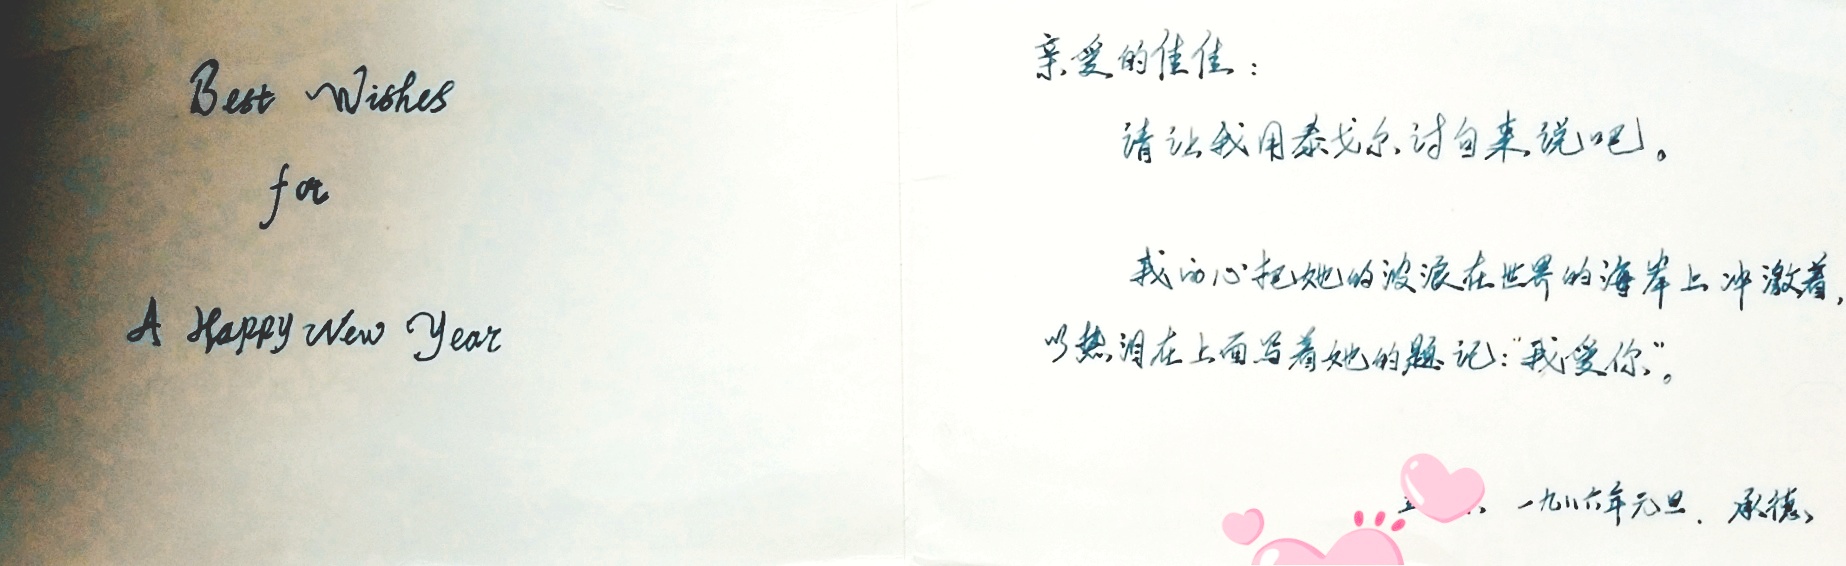 Best Wishes
for
A Happy New Year
亲爱的佳佳：
请让我用泰戈尔诗句来说吧。
我的心把她的波浪在世界的海岸上冲激着，
以热泪在上面写着她的题记：“我爱你”。
一九八六年元旦．承德、